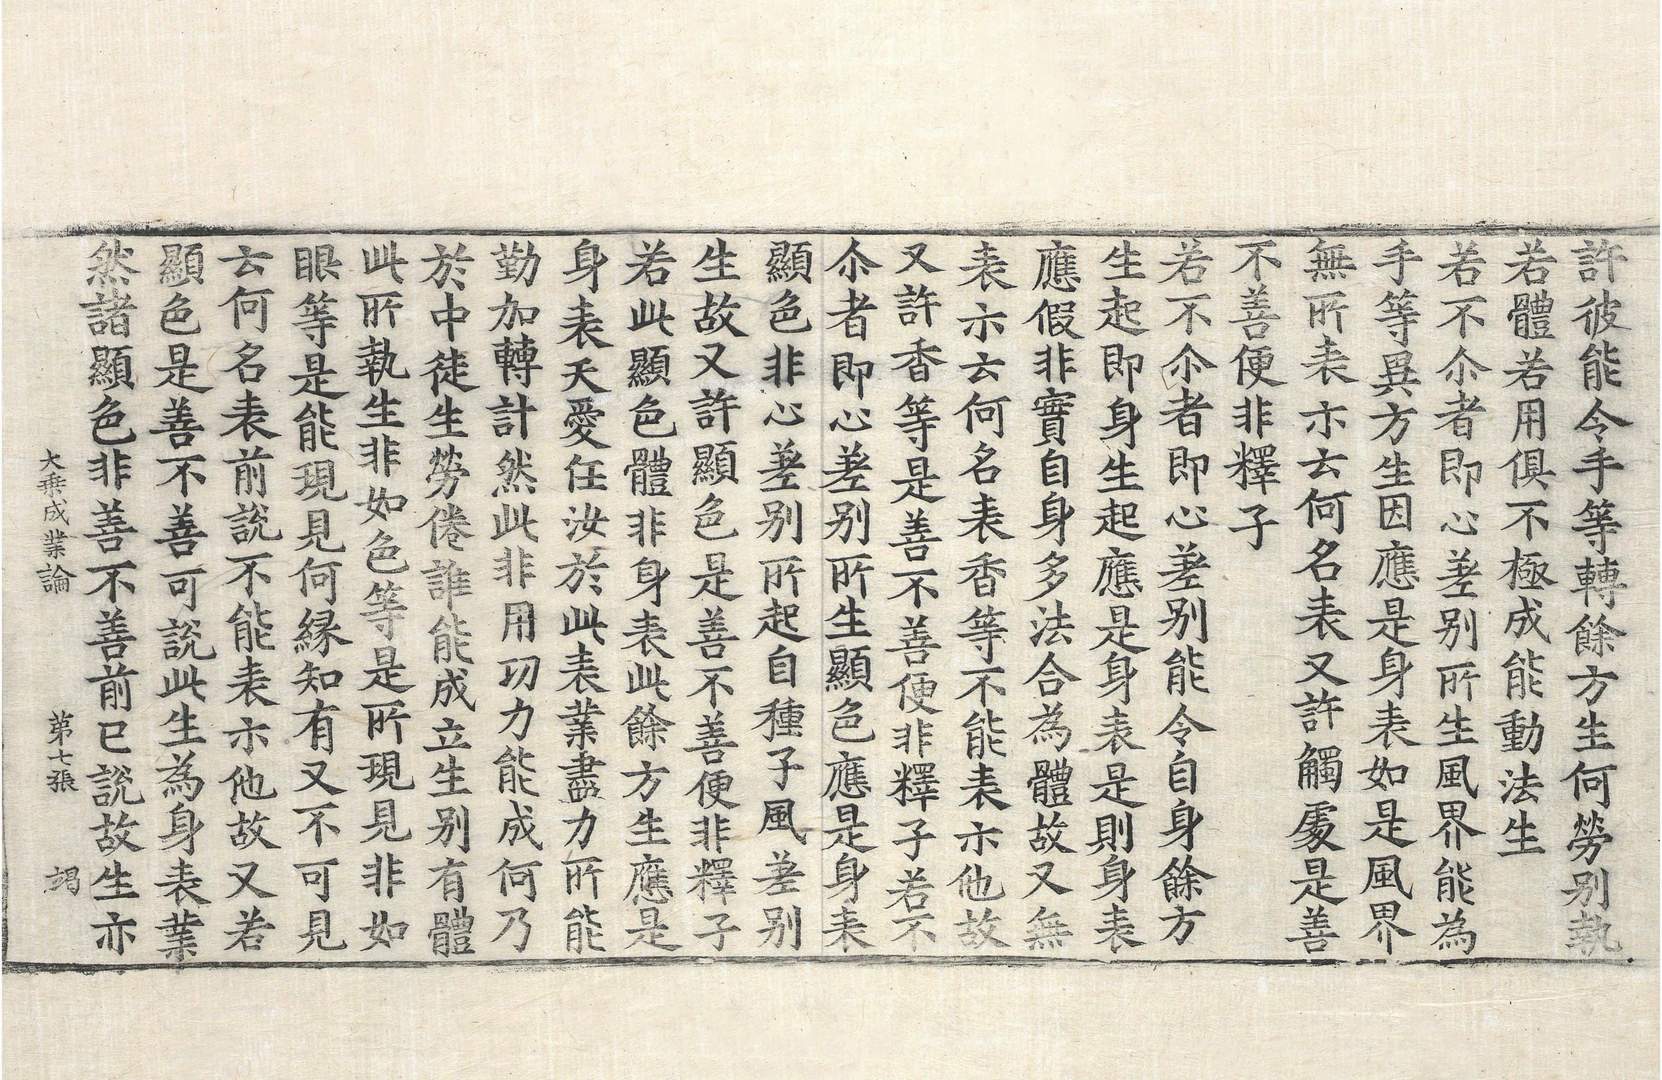 許彼能令手等轉餘方生何勞別執
若體若用俱不極成能動法生
若不尒者即心差別所生風界能為
手等異方生因應是身表如是風界
無所表示云何名表又許觸處是善
不善便非釋子
若不尒者即心差別能令自身餘方
生起即身生起應是身表是則身表
應假非實自身多法合為體故又無
表示云何名表香等不能表示他故
又許香等是善不善便非釋子若不
尒者即心差別所生顯色應是身表
顯色非心差別所起自種子風差別
生故又許顯色是善不善便非釋子
若此顯色體非身表此餘方生應是
身表天愛任汝於此表業盡力所能
勤加轉計然此非用功力能成何乃
於中徒生勞倦誰能成立生別有體
此所執生非如色等是所現見非如
眼等是能現見何緣知有又不可見
云何名表前說不能表示他故又若
顯色是善不善可說此生為身表業
然諸顯色非善不善前已說故生亦
大乗成業論 第七張 竭